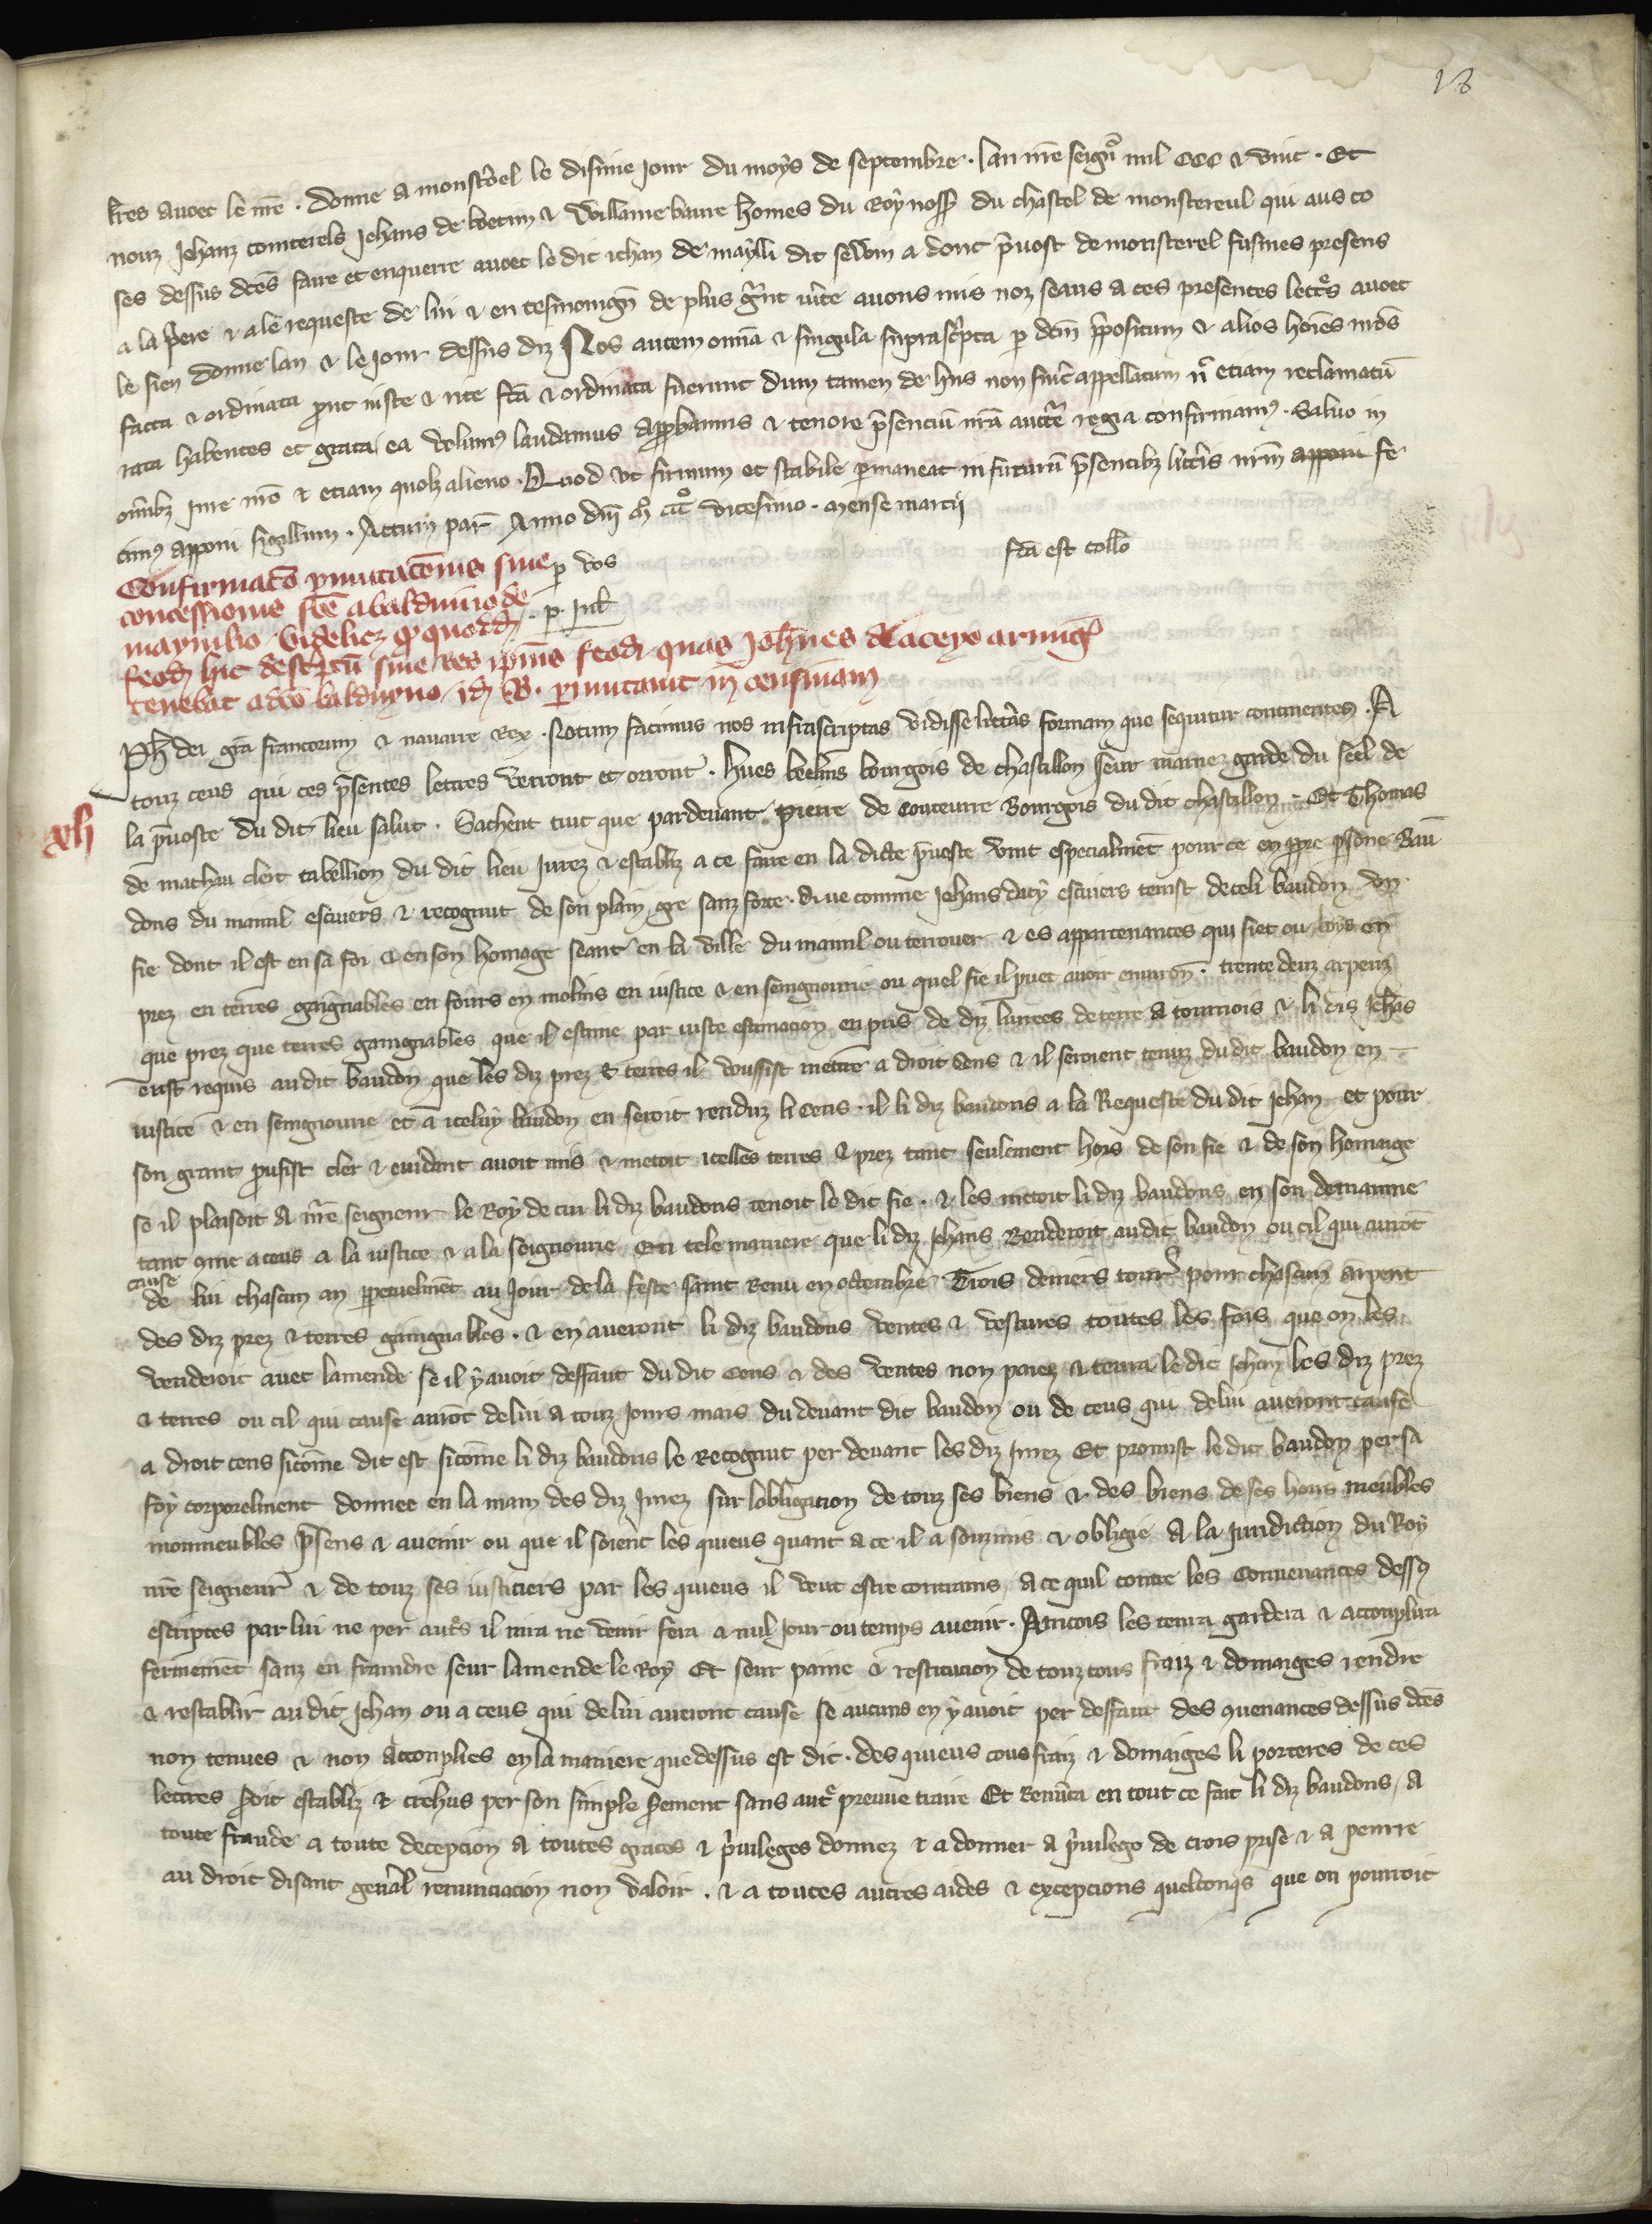 18
lres avoec le nre . Donne a monsterel le disime Jour du moys de septembre . lan nre seignr mil CCC & vint . Et
nouz Jehanz conterels Jehans de & Willame homes du Roy du chastel de monstereul qui aus co
ses dessus dces faire et enquerre avoec le dit iehan de maylli dit a donc pvost de monsterel fusmes presens
a la pere & a le requeste de lui & en tesmoingn de plus grnt vite avons mis noz seaus a ces presentes lettrs avoec
le sien donne lan & le Jour dessus diz Nos autem omia & singula suprascpta p dcm ppositum & alios hoies nros
facta & ordinata prout iuste & rite fca & ordinata fuerunt dum tamen de hiis non fuit appellatum nc etiam reclamatu
rata habentes et grata ea volum laudamus approbamus & tenore psenciu nra auctte regia confirmam . Salvo in
omibz Iure nro & etiam quolz alieno . Quod ut firmum et stabile pmaneat in futuru psentibz litteris nrm apponi fe
cim apponi sigillum . Actum par Anno dni mo cccmo vicesimo . mense marcij
fca est collo
Confirmaco pmutaconis sive p vos
concessionis fce a balduino de
maynilio videlicz quodd . p . Iul
feod hic descptu sive res ipius feodi quas Johnes de aceyo armig
tenebat a dco balduyno id B. pmutavit in censivam
Ph dei gra francorum & navarre Rex . Notum facimus nos infrascriptas vidisse litteras formam que sequitur continentes . A
touz ceus qui ces psentes lettres verront et orront . hues bourgois de chastillon seur marne garde du seel de
xli
la pvoste du dit lieu salut . Sachent tuit que pardevant Pierre de Couteurre Bourgois du dit chastillon . Et Thomas
de mathau clerc tabellion du dit lieu Jurez & establiz a ce faire en la dicte pvoste vint especialmet pour ce en ppre psone Bau
dons du mainil escuiers & recognut de son plain gre sanz force . Que comme Jehans dacy escuiers tenist de celi baudon un
fie dont il est en sa foi & en son homage seant en la ville du mainil ou terrouer & es appartenances qui siet ou boys en
prez en terres gaignables en fours en molins en iustice & en seingnourie ou quel fie il puet avoir environ . trente deuz arpenz
que prez que terres gaingnables que il estime par iuste estimacion en pris de diz livrees de terre a tournois & li diz Jehas
eust requis au dit baudon que les diz prez & terres il vousist mettre a droit cens & il seroient tenuz du dit baudon en
iustice & en seingnourie et a iceluy baudon en seroit renduz li cens . il li diz baudons a la Requeste du dit Jehan et pour
son grant profist cler & evident avoit mis & metoit icelles terres & prez tant seulement hors de son fie & de son homaige
se il plaisoit a nre seigneur le Roy de cui li diz baudons tenoit le dit fie . & les metoit li diz baudons en son demainne
tant come a ceus a la iustice & a la seignourie En tele maniere que li diz Jehans Renderoit au dit baudon ou cil qui auront
cause
de lui chascun an ppetuelmet au Jour de la feste saint Remi en octembre Trois deniers tour pour chascun arpent
des diz prez & terres gaingnables . & en averont li diz baudons ventes & vestures toutes les fois que on les
venderoit avec lamende se il y avoit deffaut du dit cens & des ventes non paiez & tenra le dit Jehan les diz prez
& terres ou cil qui cause auront de lui a touz Jours mais du devant dit baudon ou de ceus qui de lui averont cause
a droit cens sicome dit est sicome li diz baudons le Recognut per devant les diz Jurez Et promist le dit baudon per sa
foy corporelment donnee en la main des diz Jurez sur lobligacion de touz ses biens & des biens de ses hoirs meubles
nonmeubles psens & avenir ou que il soient les quieus quant a ce il a souzmis & obligie A la Juridiction du Roy
nre seigneur & de touz ses iusticiers par les quieus il veut estre contrains a ce quil contre les convenances dess
escriptes par lui ne per autrs il nira ne venir fera a nul Jour ou temps avenir . Aincois les tenra gardera & acconplira
fermemet sanz enfraindre seur lamende le Roy Et seur paine & restitucion de touz cous fraiz & domaiges rendre
& restablir au dit Jehan ou a ceus qui de lui averont cause se aucuns en y avoit per deffaut des quenances dessus dces
non tenues & non acconplies en la maniere que dessus est dit . des quieus cous fraiz & domaiges li porteres de ces
lettres soit establiz & crehus per son simple serement sans autr preuve traire Et Renuca en tout ce fait li diz baudons , A
toute fraude a toute decepcion a toutes graces & pvileges donnez & a donner a pvilege de crois prise & a penrre
au droit disant genal renunciacion non valoir . & a toutes autres aides & excepcions quelconqs que on pourroit